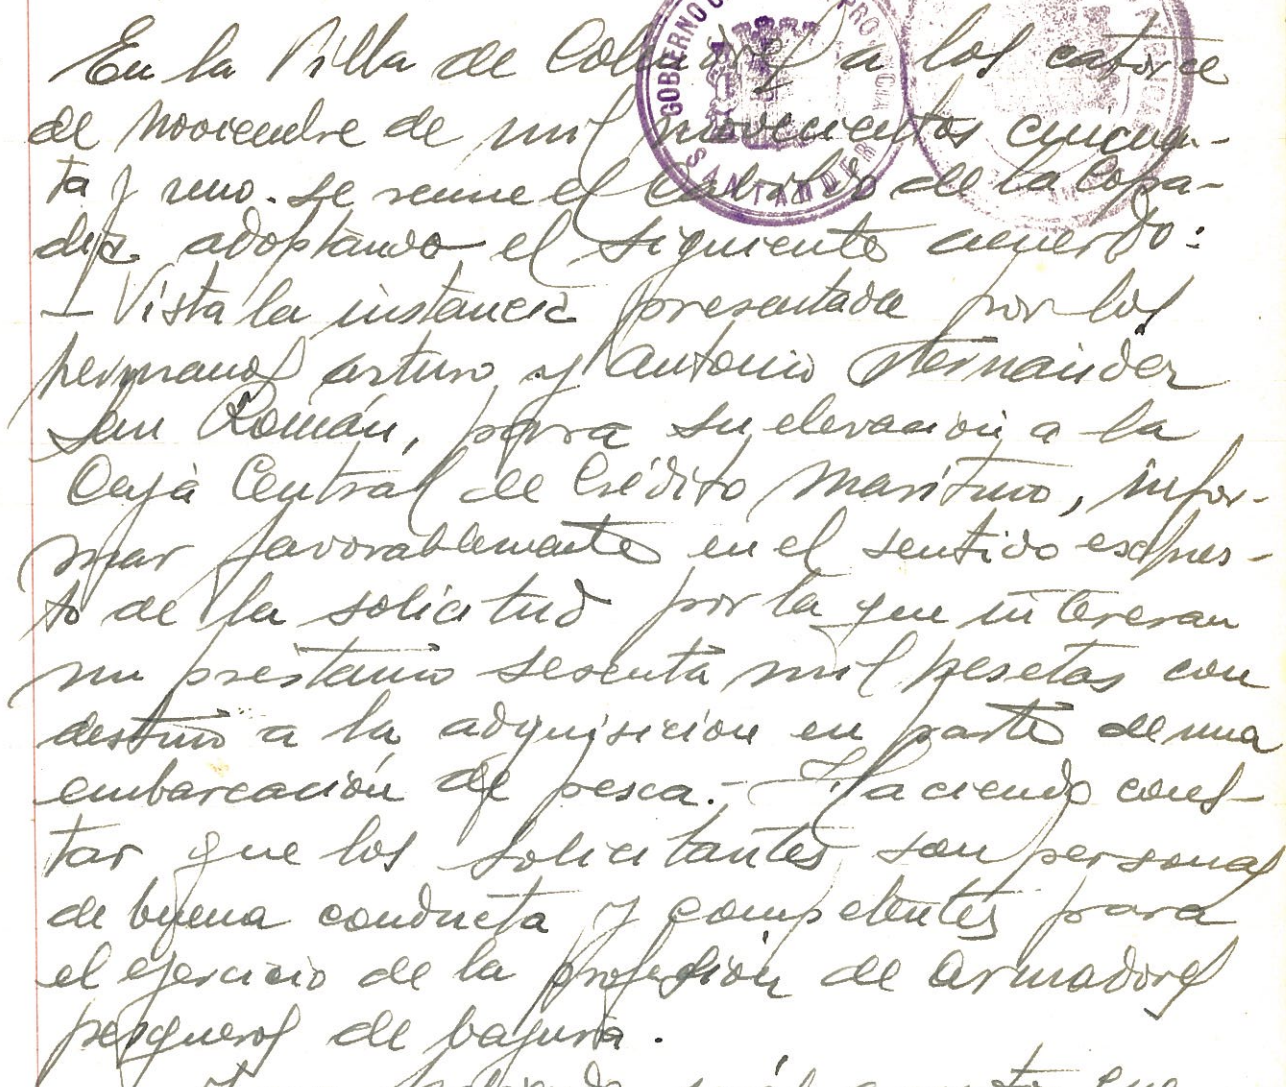 En la Villa de Colindres a los catorce
de noviembre de mil novecientos cincuen-
ta y uno. Se reune el Cabildo de la Cofa-
día adoptando el siguiente acuerdo:
- Vista la instancia presentada por los
hermanos Arturo y Antonio Hernández
San Román, para su elevación a la
Caja Central de Crédito Marítimo, infor-
mar favorablemente en el sentido espues-
to de la solicitud por la que interesan
un préstamo sesenta mil pesetas con
destino a la adquisición en parte de una
embarcación de pesca.- Haciendo cons-
tar que los solicitantes son personas
de buena conducta y competentes para
el ejercicio de la profesión de armadores
pesqueros de bajura.
GOBIERNO
SANTANDER